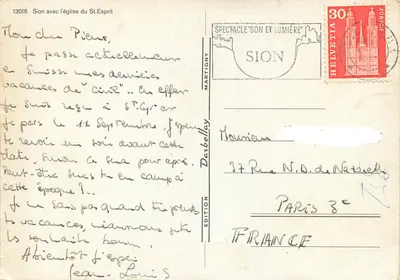 13016 Sion avec l'église du St.Esprit
Mon cher Pierre,
Je passe actuellement
en Suisse mes dernières
vacances de "civil".. En effet
Je suis reçu à St Cyr et
Je pars le 11 Septembre. J'espère
te revoir un soir avant cette
date. Sinon ce sera pour après.
Peut-être seras tu en camp à
cette époque?..
Je ne sais pas quand tu prends
tes vacances, néanmoins je te
les souhaite bonnes.
A bientôt j'espère
Jean-Louis
EDITION Darbellay MARTIGNY
SPECTACLE "SON ET LUMIÈRE"
SION
30
HELVETIA
ZÜRICH
Monsieur
37 Rue N.D. de Nazareth
PARIS 3e
FRANCE